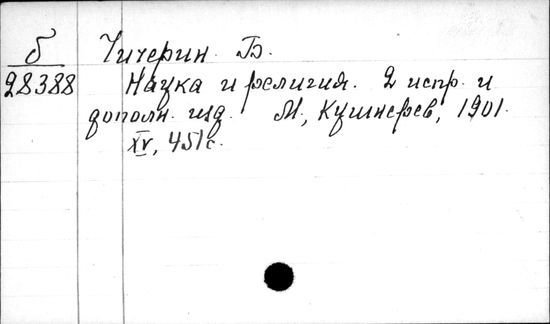 б
28388
Чичерин Б.
Наука и религия. 2 испр. и
дополн. изд. М., Кушнерев, 1901.
XV, 451с.